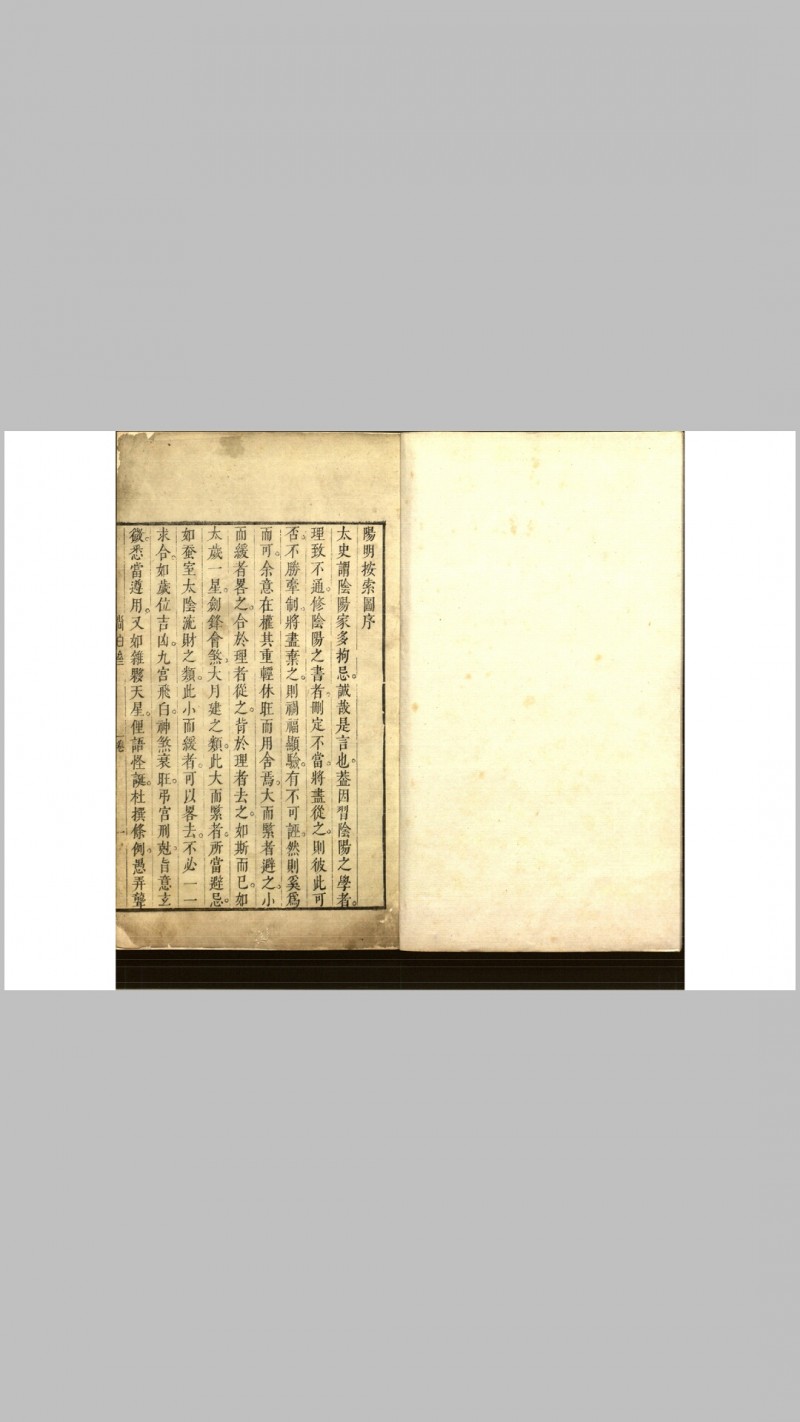 陽明按索圖序
太史謂陰陽家多拘忌。誠哉是言也。葢因習陰陽之學者。
理致不通。修陰陽之書者。刪定不當。將盡從之。則彼此可
否。不勝牽制。將盡棄之。則禍福顯驗。有不可誣。然則奚爲
而可。余意在權其重輕休旺而用舍焉。大而緊者避之。小
而緩者畧之。合於理者從之。背於理者去之。如斯而已。如
太歲一星。劍鋒會煞。大月建之類。此大而緊者。所當避忌。
如蚕室太陰流財之類。此小而緩者。可以畧去。不必一一
求合。如歲位吉凶。九宮飛白。神煞衰旺。弔宮刑尅。旨意玄
微。悉當遵用。又如雜髎天星。俚語怪誕。杜撰條例。愚弄聾